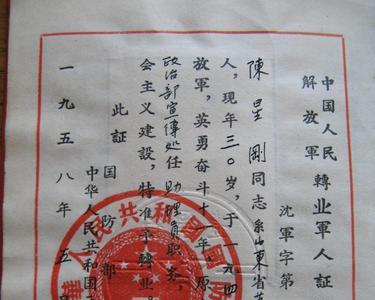 中国人民
解放軍 轉业軍人証
沈軍字第
陳星剛同志系山东省
人，現年三〇岁，于一九四
放軍，英勇奋斗十一年。原
政治部宣傳处任助理員职务
会主义建設，特准予轉业。
此証
国防部
中华人民共和国
一九五八年五